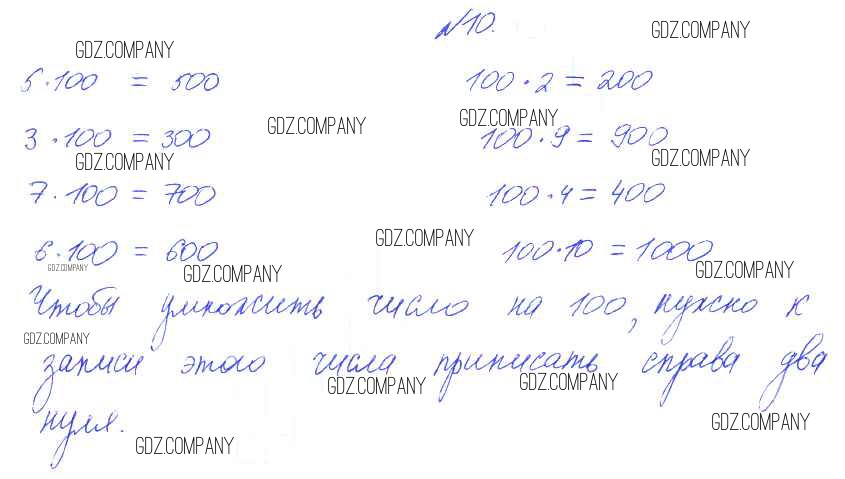 №10.
GDZ.COMPANY GDZ.COMPANY
5·100 = 500 100·2 = 200
GDZ.COMPANY GDZ.COMPANY
3·100 = 300 100·9 = 900
GDZ.COMPANY GDZ.COMPANY
7·100 = 700 100·4 = 400
GDZ.COMPANY
6·100 = 600 100·10 = 1000
GDZ.COMPANY GDZ.COMPANY GDZ.COMPANY
Чтобы умножить число на 100, нужно к
GDZ.COMPANY
записи этого числа приписать справа два
GDZ.COMPANY GDZ.COMPANY
нуля.
GDZ.COMPANY
GDZ.COMPANY